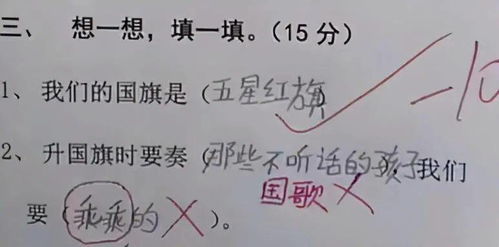 三、 想一想，填一填。（15 分）
-10
1、我们的国旗是（五星红旗
2、升国旗时要奏（那些不听话的孩子，我们
国歌
要（乖乖的）。